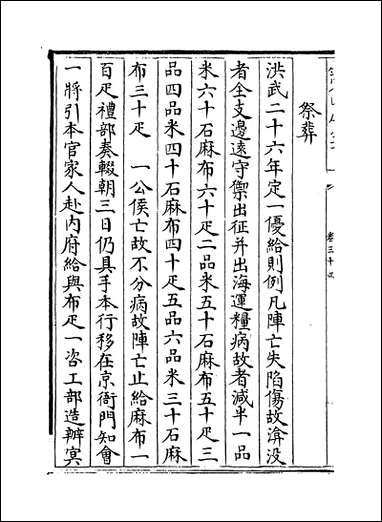 祭葬
洪武二十六年定一優給則例凡陣亡失陷傷故渰没
者全支邊遠守禦出征并出海運糧病故者減半一品
米六十石麻布六十疋二品米五十石麻布五十疋三
品四品米四十石麻布四十疋五品六品米三十石麻
布三十疋 一公侯亡故不分病故陣亡止給麻布一
百疋禮部奏輟朝三日仍具手本行移在京衙門知會
一將引本官家人赴内府給與布疋一咨工部造辦冥